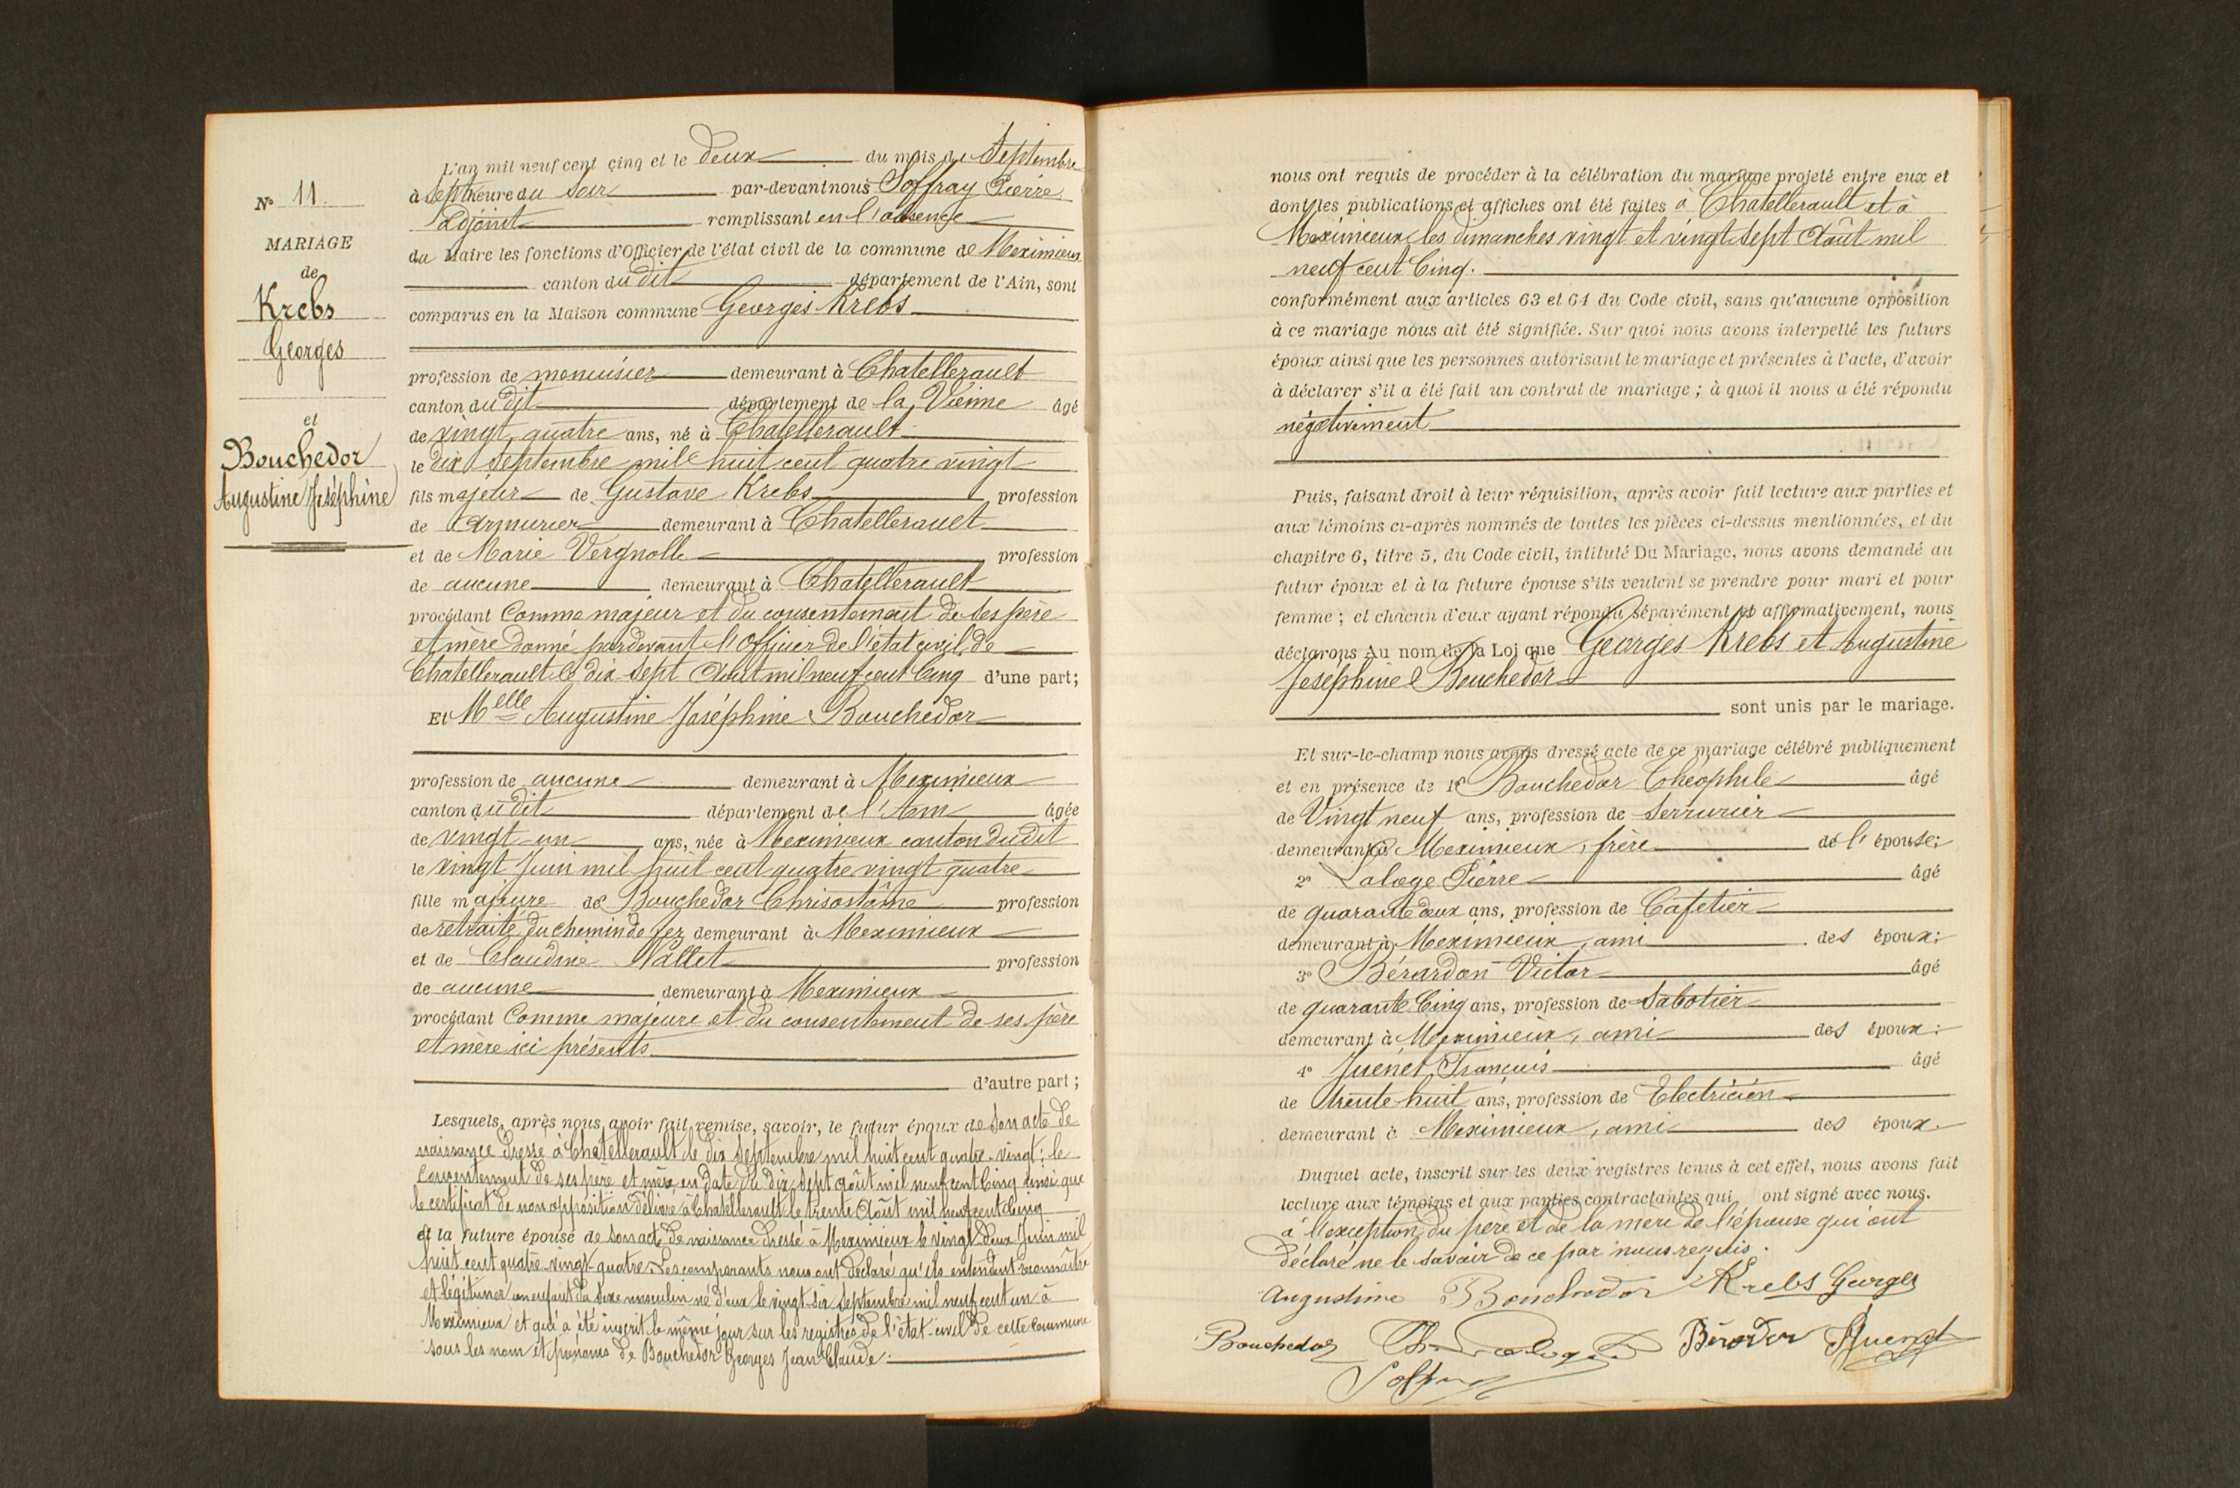 N° 11
MARIAGE
de
Krebs
Georges
et
Bouchedor
Augustine Joséphine
L'an mil neuf cent cinq et le deux du mois de Septembre
à sept heure du soir par-devant nous Soffray Pierre
adjoint remplissant en l'absence
du Maire les fonctions d'Officier de l'état civil de la commune de Meximieux
canton du dit département de l'Ain, sont
comparus en la Maison commune Georges Krebs
profession de menuisier demeurant à Chatellerault
canton du dit département de la Vienne âgé
de vingt quatre ans, né à Chatellerault
le dix septembre mil huit cent quatre vingt
fils majeur de Gustave Krebs profession
de armurier demeurant à Chatellerault
et de Marie Vergnolle profession
de aucune demeurant à Chatellerault
procédant comme majeur et du consentement de ses père
et mère donné pardevant l'officier de l'état civil de
Chatellerault le dix sept Août mil neuf cent cinq d'une part;
Et Melle Augustine Joséphine Bouchedor
profession de aucune demeurant à Meximieux
canton du dit département de l'Ain âgée
de vingt un ans, née à Meximieux canton du dit
le vingt Juin mil huit cent quatre vingt quatre
fille majeure de Bouchedor Chrisostôme profession
de retraité du chemin de fer demeurant à Meximieux
et de Claudine Nallet profession
de aucune demeurant à Meximieux
procédant comme majeure et du consentement de ses père
et mère ici présents
d'autre part;
Lesquels, après nous avoir fait remise, savoir, le futur époux de son acte de
naissance dressé à Chatellerault le dix Septembre mil huit cent quatre-vingt; le
consentement de ses père et mère en date du dix sept août mil neuf cent cinq ainsi que
le certificat de non opposition délivré à Chatellerault le trente Août mil neuf cent cinq
et la future épouse de son acte de naissance dressé à Meximieux le vingt deux Juin mil
huit cent quatre-vingt-quatre. Les comparants nous ont déclaré qu'ils entendent reconnaître
et légitimer un enfant du sexe masculin né d'eux le vingt six Septembre mil neuf cent un à
Meximieux et qui a été inscrit le même jour sur les registres de l'état-civil de cette commune
sous les nom et prénoms de Bouchedor Georges Jean Claude.
nous ont requis de procéder à la célébration du mariage projeté entre eux et
dont les publications et affiches ont été faites à Chatellerault et à
Meximieux les dimanches vingt et vingt sept Août mil
neuf cent cinq.
conformément aux articles 63 et 64 du Code civil, sans qu'aucune opposition
à ce mariage nous ait été signifiée. Sur quoi nous avons interpellé les futurs
époux ainsi que les personnes autorisant le mariage et présentes à l'acte, d'avoir
à déclarer s'il a été fait un contrat de mariage; à quoi il nous a été répondu
négativement
Puis, faisant droit à leur réquisition, après avoir fait lecture aux parties et
aux témoins ci-après nommés de toutes les pièces ci-dessus mentionnées, et du
chapitre 6, titre 5, du Code civil, intitulé Du Mariage, nous avons demandé au
futur époux et à la future épouse s'ils veulent se prendre pour mari et pour
femme; et chacun d'eux ayant répondu séparément et affirmativement, nous
déclarons Au nom de la Loi que Georges Krebs et Augustine
Joséphine Bouchedor
sont unis par le mariage.
Et sur-le-champ nous avons dressé acte de ce mariage célébré publiquement
et en présence de 1° Bouchedor Théophile âgé
de Vingt neuf ans, profession de Serrurier
demeurant à Meximieux, frère de l'épouse;
2° Laloge Pierre âgé
de quarante deux ans, profession de Cafetier
demeurant à Meximieux, ami des époux;
3° Bérardan Victor âgé
de quarante cinq ans, profession de Sabotier
demeurant à Meximieux, ami des époux;
4° Juénet François âgé
de trente huit ans, profession de Electricien
demeurant à Meximieux, ami des époux.
Duquel acte, inscrit sur les deux registres tenus à cet effet, nous avons fait
lecture aux témoins et aux parties contractantes qui ont signé avec nous.
à l'exception du père et de la mère de l'épouse qui ont
déclaré ne le savoir de ce par nous requis.
Augustine Bouchedor Krebs Georges
Bouchedor Th Laloge Juenet
Soffray